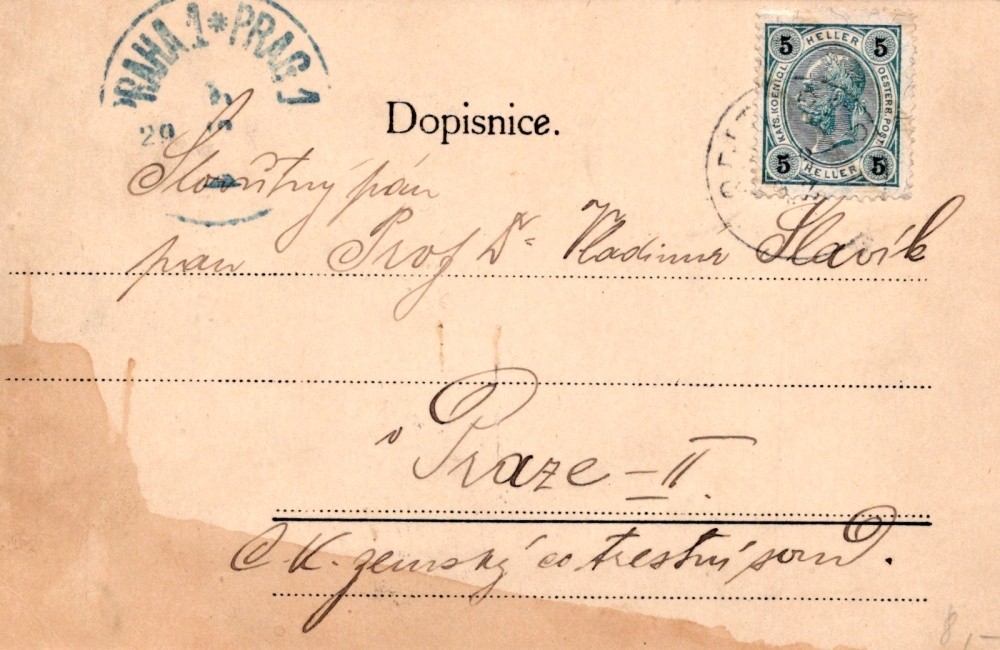 PRAHA.1 * PRAG.1
29
Dopisnice.
5 HELLER 5
KAIS. KOENIGL. OESTERR. POST.
5 HELLER 5
Slovutný pán
pan Prof Dr Vladimir Slavík
v Praze - II.
C K. zemský co trestní soud.
8,-